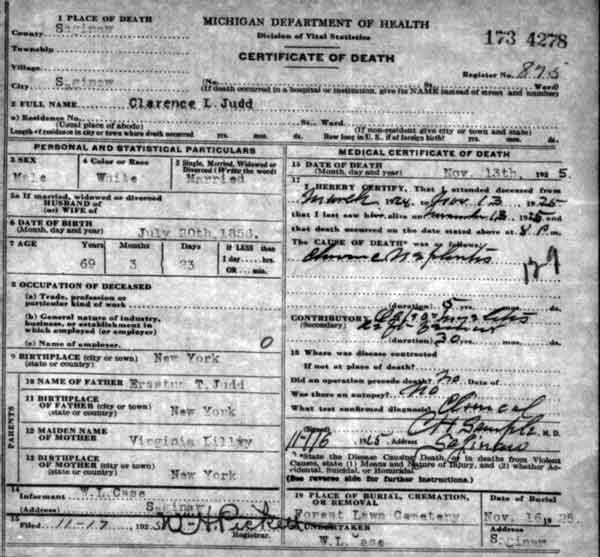 1 PLACE OF DEATH
County Saginaw
Township
Village
City Saginaw
MICHIGAN DEPARTMENT OF HEALTH
Division of Vital Statistics
CERTIFICATE OF DEATH
173 4278
Register No. 875
(No. St., Ward)
(If death occurred in a hospital or institution, give its NAME instead of street and number)
2 FULL NAME Clarence L Judd
a) Residence No. St., Ward.
(Usual place of abode) (If non-resident give city or town and state)
Length of residence in city or town where death occurred yrs. mos. ds. How long in U. S., if of foreign birth? yrs. mos. ds.
PERSONAL AND STATISTICAL PARTICULARS
3 SEX
Male
4 Color or Race
White
5 Single, Married, Widowed or
Divorced (Write the word)
Married
5a If married, widowed or divorced
HUSBAND of
(or) WIFE of
6 DATE OF BIRTH
(Month, day and year) July 20th, 1856.
7 AGE Years Months Days If LESS than
69 3 23 1 day hrs.
OR min.
8 OCCUPATION OF DECEASED
(a) Trade, profession or
particular kind of work
(b) General nature of industry,
business, or establishment in
which employed (or employer)
(c) Name of employer 0
9 BIRTHPLACE (city or town) New York
(state or country)
PARENTS
10 NAME OF FATHER Erastus T. Judd
11 BIRTHPLACE
OF FATHER (city or town)
(state or country) New York
12 MAIDEN NAME
OF MOTHER Virginia
13 BIRTHPLACE
OF MOTHER (city or town)
(state or country) New York
14
Informant W.L. Case
(Address) Saginaw
15
Filed 11-17, 1925 W. H. Pickett
Registrar.
MEDICAL CERTIFICATE OF DEATH
16 DATE OF DEATH
(Month, day and year) Nov. 13th, 1925.
17
I HEREBY CERTIFY, That I attended deceased from
March 1924, to Nov 13, 1925
that I last saw him alive on November 13, 1925 and
that death occurred on the date stated above at 8 P.m.
The CAUSE OF DEATH* was as follows:
Chronic Nephritis
129
(duration) 5 yrs. mos. ds.
CONTRIBUTORY
(Secondary)
(duration) 30 yrs. mos. ds.
18 Where was disease contracted
If not at place of death?
Did an operation precede death? no Date of
Was there an autopsy? No
What test confirmed diagnosis? Clinical
(Signed) Sample, M. D.
11-16 1925, Address Saginaw
*State the Disease Causing Death, or in deaths from Violent
Causes, state (1) Means and Nature of Injury, and (2) whether Ac-
cidental, Suicidal, or Homicidal.
(See reverse side for further instructions.)
19 PLACE OF BURIAL, CREMATION,
OR REMOVAL
Forest Lawn Cemetery,
Date of Burial
Nov. 16 1925.
20 UNDERTAKER
W.L. Case
Address
Saginaw